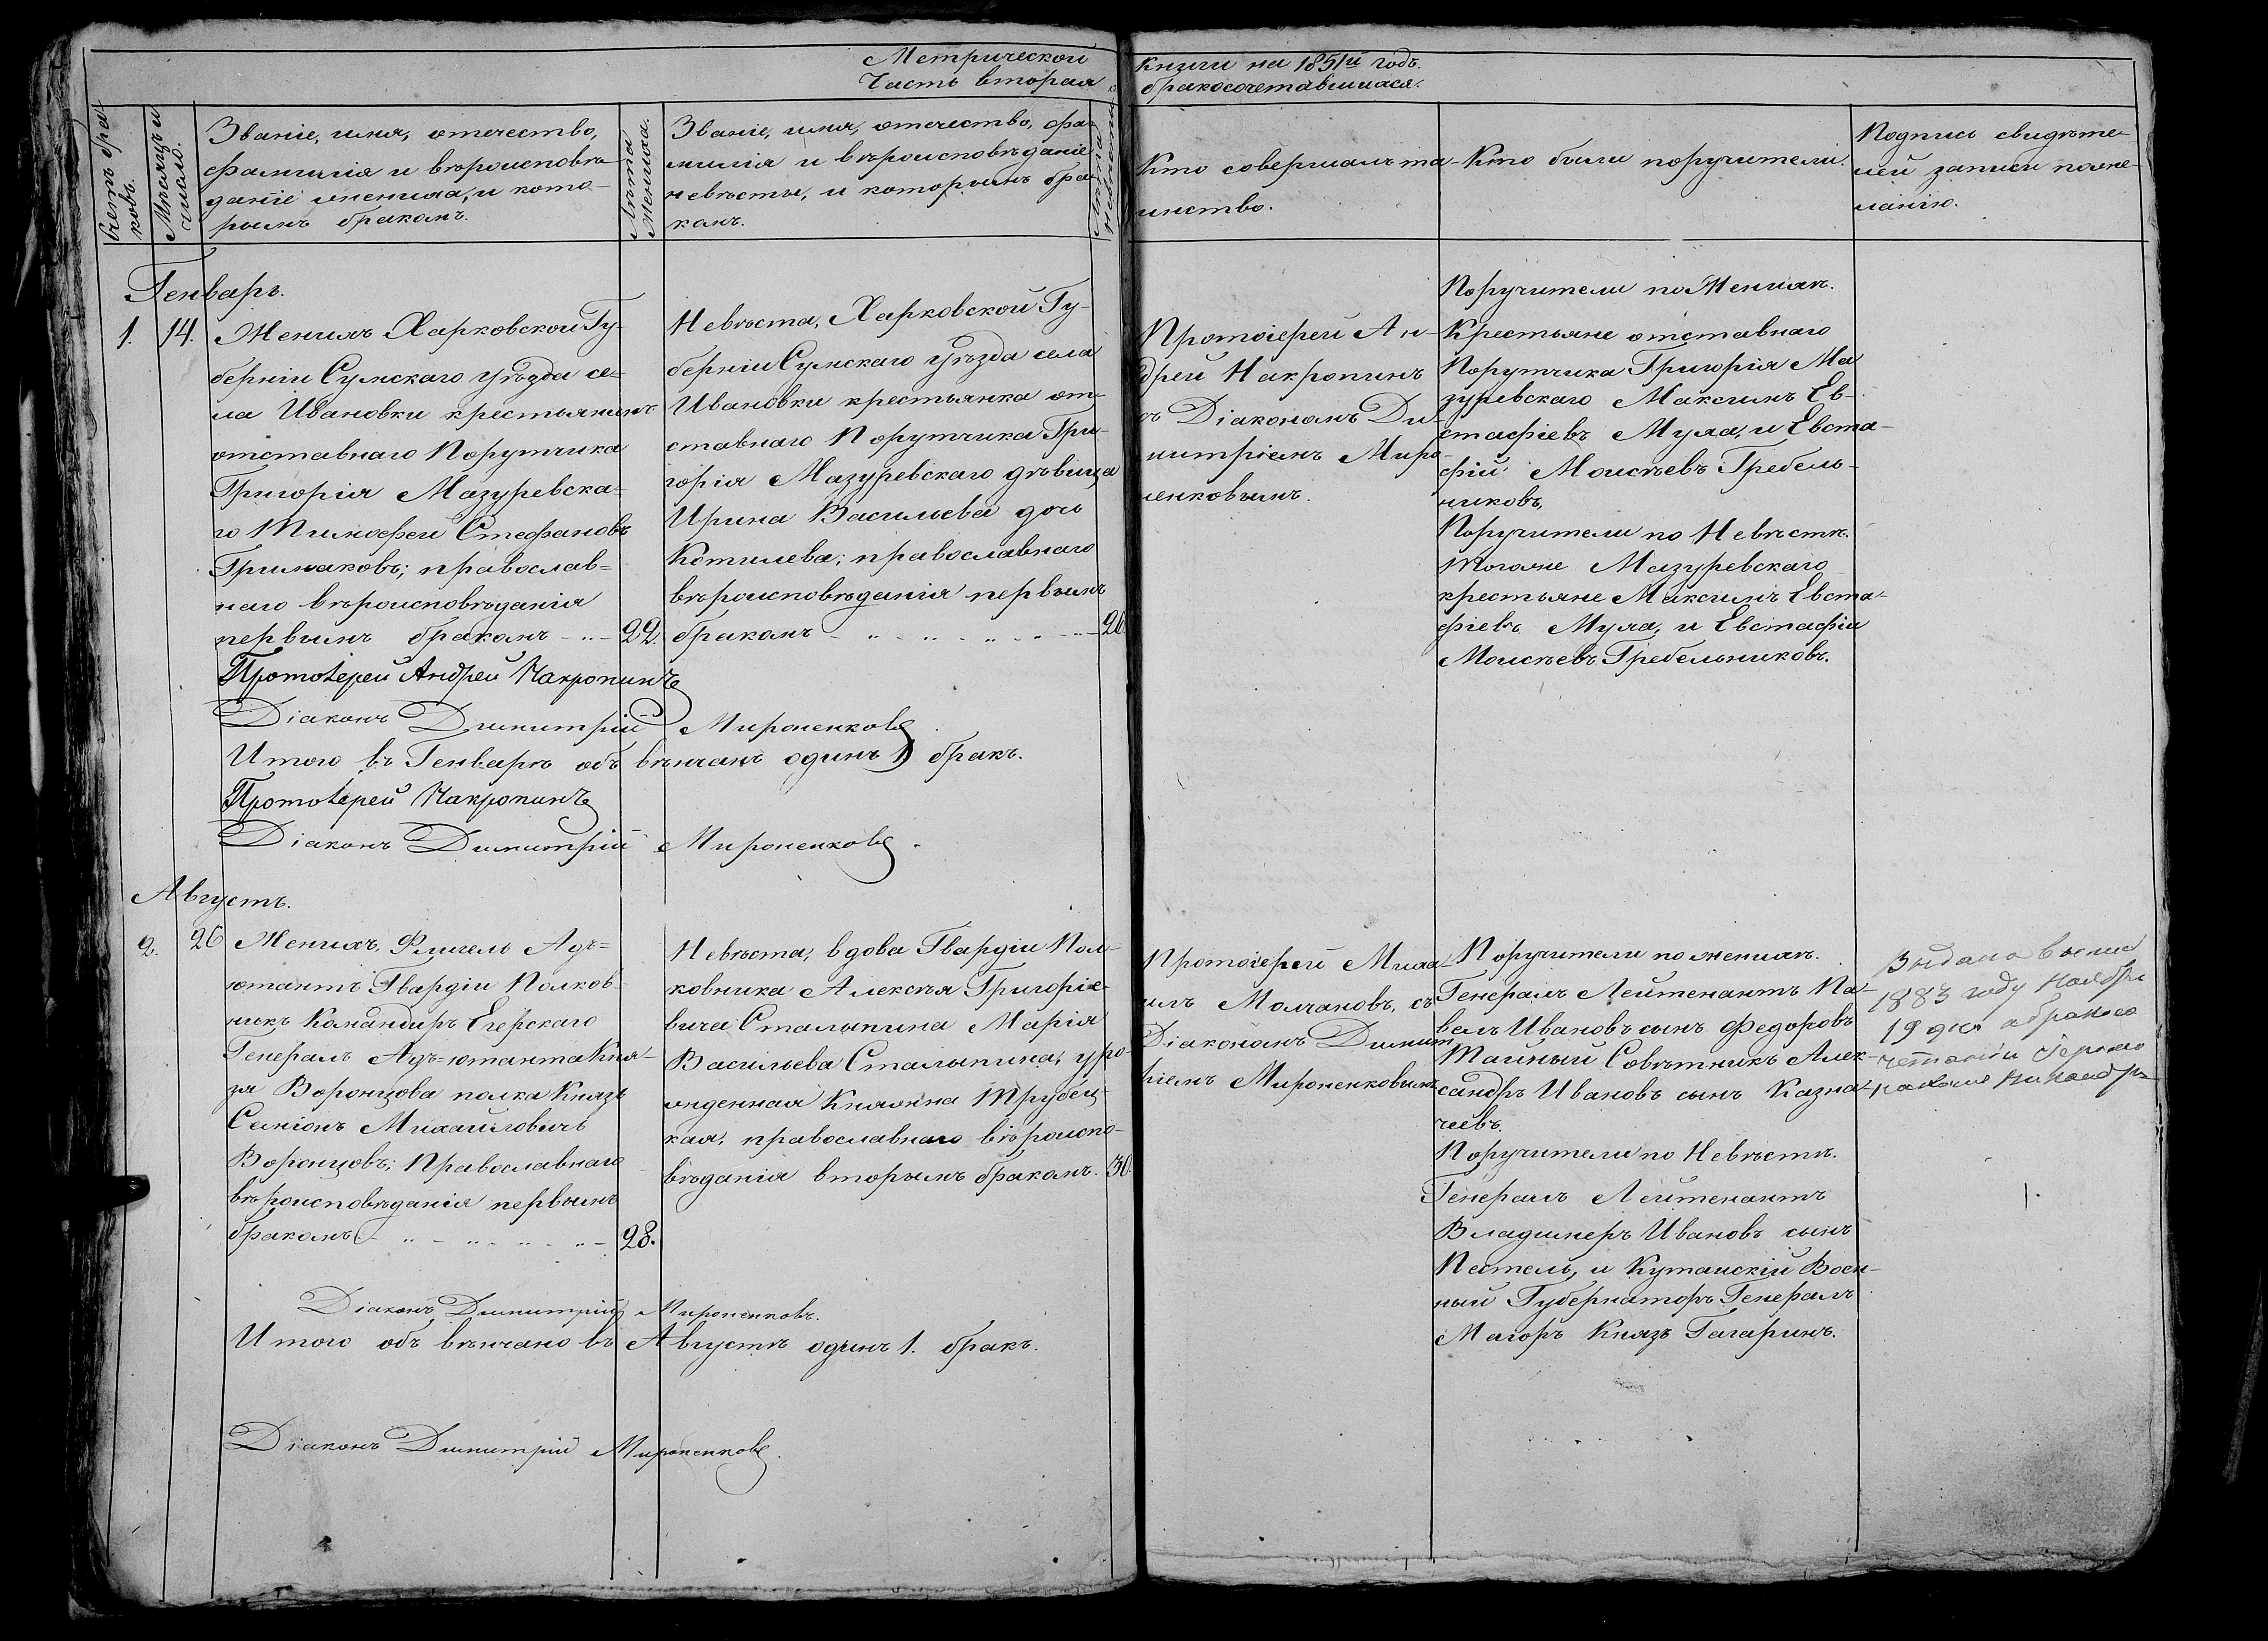 Метрической
Часть вторая о
книги на 1851й годъ.
бракосочетавшихся.
Счетъ бра
ковъ.
Мѣсяцъ и
число.
Званіе, имя, отечество,
фамилія и вѣроисповѣ
даніе жениха, и кото-
рымъ бракомъ.
Лѣта
Жениха.
Званіе, имя, отечество, фа-
милія и вѣроисповѣданіе
невѣсты, и которымъ бра-
комъ.
Лѣта
невѣсты
Кто совершалъ та-
инство.
Кто были поручители.
Подпись свидѣте-
лей записи по же-
ланію.
Генварь.
1.
14.
Женихъ Харковской Гу-
берніи Сумскаго уѣзда се=
ла Ивановки крестьянинъ
отставнаго Порутчика
Григорія Мазуревска-
го Тимофей Стефановъ
Гримаковъ; православ=
наго вѣроисповѣданія
первымъ бракомъ
22.
Невѣста, Харковской Гу-
берніи Сумскаго уѣзда села
Ивановки крестьянка от-
ставнаго Порутчика Гри-
горія Мазуревскаго дѣвица
Ирина Васильева дочь
Котилева; православнаго
вѣроисповѣданія первымъ
бракомъ
20
Протоіерей Ан-
дрей Накропинъ
съ Діакономъ Ди-
митріемъ Миро-
ненковымъ.
Поручители по Женихѣ.
Крестьяне отставнаго
Порутчика Григорія Ма
зуревскаго Максимъ Ев-
стафіевъ Муха, и Евста-
фій Моисѣевъ Гребель-
никовъ,
Поручители по Невѣстѣ.
Тогоже Мазуревскаго
крестьяне Максимъ Евста-
фіевъ Муха, и Евстафій
Моисѣевъ Гребельниковъ.
Протоіерей Андрей Накропинъ
Діаконъ Димитрій Мироненковъ
Итого въ Генварѣ обвѣнчанъ одинъ 1) бракъ.
Протоіерей Накропинъ
Діаконъ Димитрій Мироненковъ.
Августъ.
2.
26
Женихъ, Флигель Адъ=
ютантъ Гвардіи Полков-
никъ Командиръ Егерскаго
Генералъ Адъ-ютанта Кня-
зя Воронцова полка Князь
Семіонъ Михайловичь
Воронцовъ; Православнаго
вѣроисповѣданія первымъ
бракомъ
28.
Невѣста, вдова Гвардіи Пол-
ковника Алексѣя Григоріе-
вича Сталыпина Марія
Васильева Сталыпина, уро-
жденная Княжна Трубец-
кая, православнаго вѣроиспо-
вѣданія вторымъ бракомъ.
30.
Протоіерей Миха-
илъ Молчановъ, съ
Діакономъ Димит
ріемъ Мироненковымъ
Поручители по женихѣ.
Генералъ Лейтенантъ Па-
велъ Ивановъ сынъ Федоровъ
Тайный Совѣтникъ Алек-
сандръ Ивановъ сынъ Казна-
чеевъ.
Поручители по Невѣстѣ.
Генералъ Лейтенантъ
Владимеръ Ивановъ сынъ
Пестель, и Кутаискій Воен-
ный Губернаторъ Генералъ
Маіоръ Князь Гагаринъ.
Выдана выпис
1883 году Ноября
19 дня о бракосо
четаніи
Діаконъ Димитрій Мироненковъ.
Итого обвѣнчано въ Августѣ одинъ 1. бракъ.
Діаконъ Димитрій Мироненковъ.